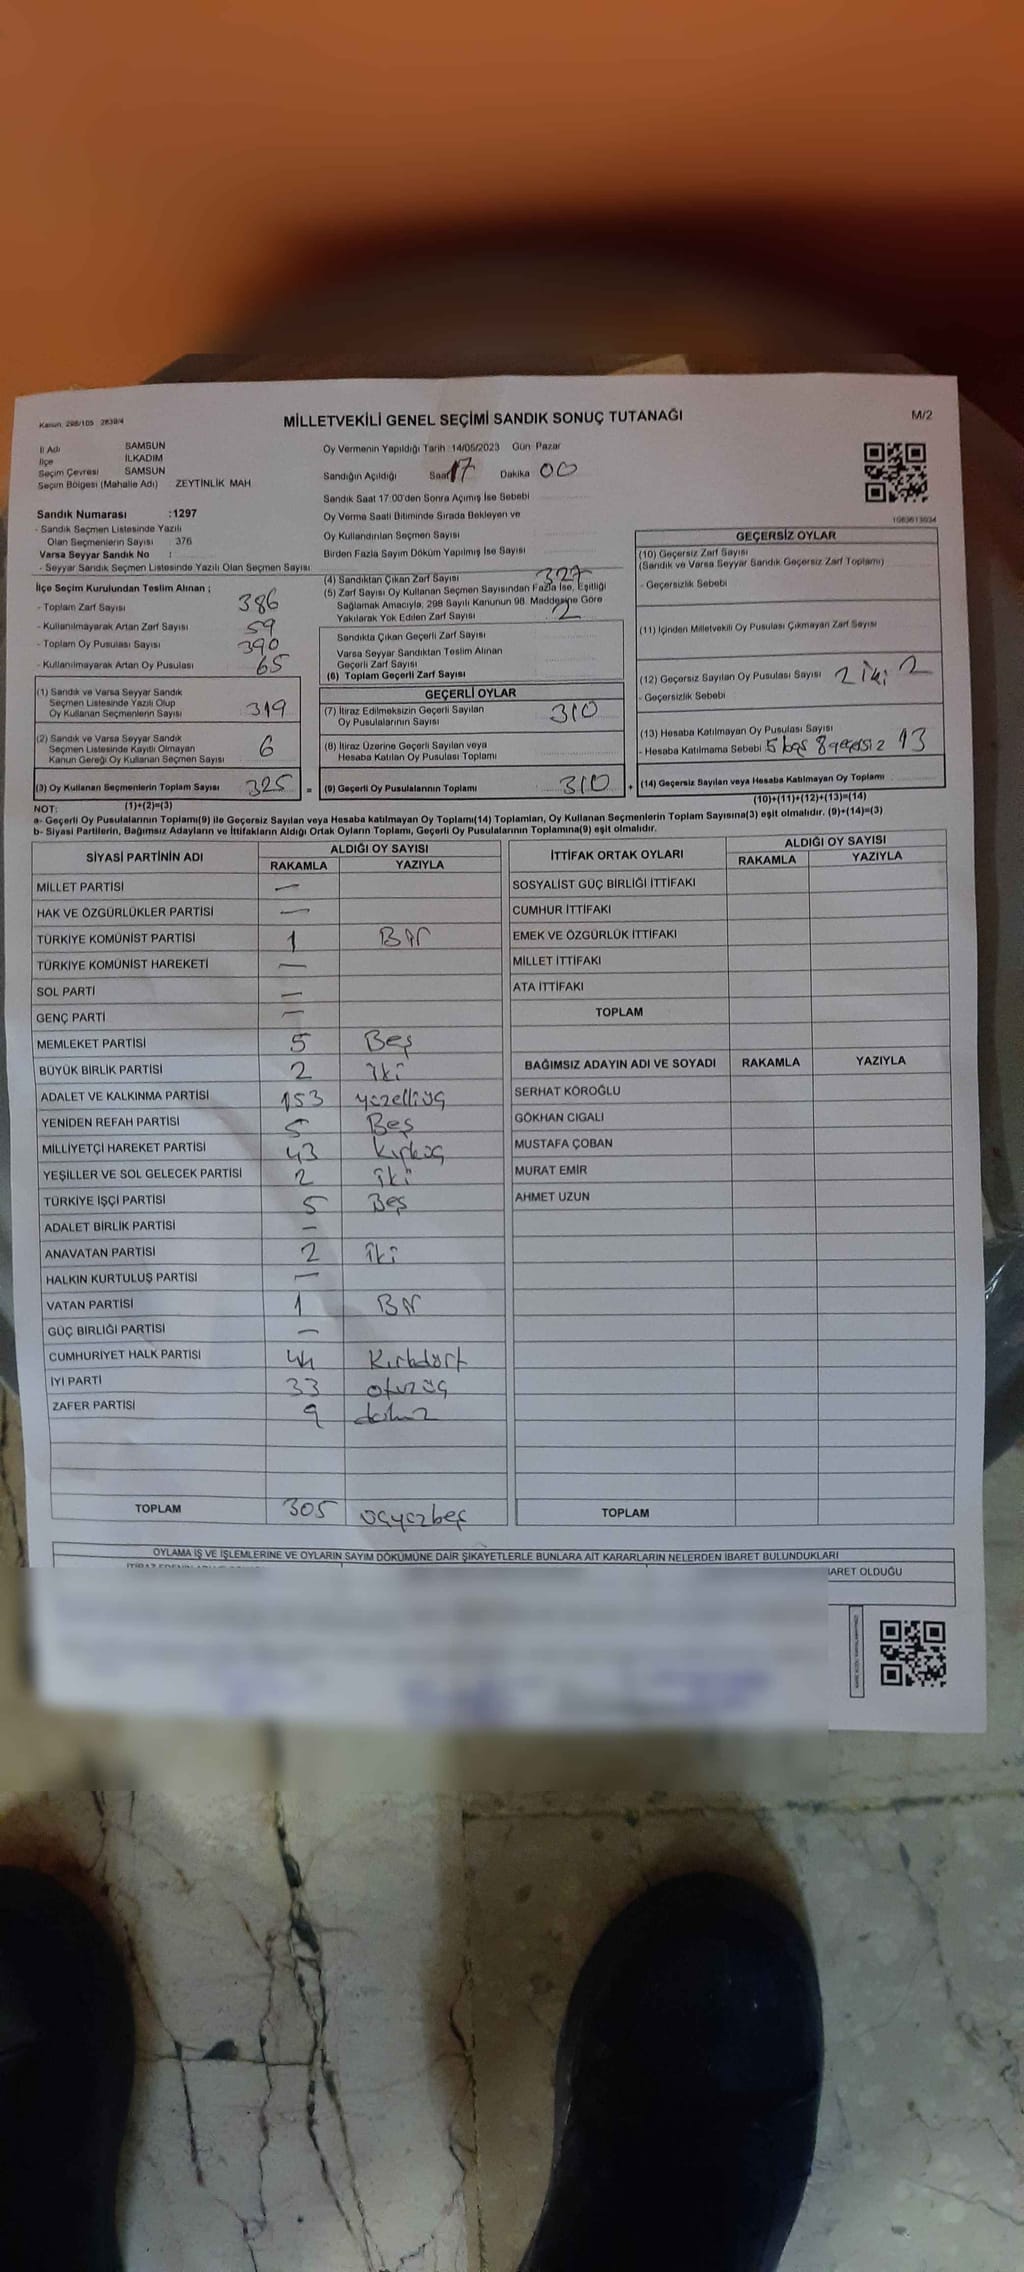 Kanun, 298/105 2839/4
MİLLETVEKİLİ GENEL SEÇİMİ SANDIK SONUÇ TUTANAĞI
M/2
İl Adı SAMSUN
İlçe İLKADIM
Seçim Çevresi SAMSUN
Seçim Bölgesi (Mahalle Adı) : ZEYTİNLİK MAH
Sandık Numarası :1297
- Sandık Seçmen Listesinde Yazılı
Olan Seçmenlerin Sayısı : 376
Varsa Seyyar Sandık No :
- Seyyar Sandık Seçmen Listesinde Yazılı Olan Seçmen Sayısı
Oy Vermenin Yapıldığı Tarih :14/05/2023 Gün: Pazar
Sandığın Açıldığı Saat 17 Dakika 00
Sandık Saat 17:00'den Sonra Açımış İse Sebebi
Oy Verme Saati Bitiminde Sırada Bekleyen ve
Oy Kullandırılan Seçmen Sayısı
Birden Fazla Sayım Döküm Yapılmış İse Sayısı
1083613034
İlçe Seçim Kurulundan Teslim Alınan ;
- Toplam Zarf Sayısı 386
- Kullanılmayarak Artan Zarf Sayısı 59
- Toplam Oy Pusulası Sayısı 390
- Kullanılmayarak Artan Oy Pusulası 65
(1) Sandık ve Varsa Seyyar Sandık
Seçmen Listesinde Yazılı Olup
Oy Kullanan Seçmenlerin Sayısı 319
(2) Sandık ve Varsa Seyyar Sandık
Seçmen Listesinde Kayıtlı Olmayan
Kanun Gereği Oy Kullanan Seçmen Sayısı 6
(3) Oy Kullanan Seçmenlerin Toplam Sayısı 325 =
(4) Sandıktan Çıkan Zarf Sayısı 327
(5) Zarf Sayısı Oy Kullanan Seçmen Sayısından Fazla İse, Eşitliği
Sağlamak Amacıyla, 298 Sayılı Kanunun 98. Maddesine Göre
Yakılarak Yok Edilen Zarf Sayısı 2
Sandıkta Çıkan Geçerli Zarf Sayısı
Varsa Seyyar Sandıktan Teslim Alınan
Geçerli Zarf Sayısı
(6) Toplam Geçerli Zarf Sayısı
GEÇERLİ OYLAR
(7) İtiraz Edilmeksizin Geçerli Sayılan
Oy Pusulalarının Sayısı 310
(8) İtiraz Üzerine Geçerli Sayılan veya
Hesaba Katılan Oy Pusulası Toplamı
(9) Geçerli Oy Pusulalarının Toplamı 310 +
GEÇERSİZ OYLAR
(10) Geçersiz Zarf Sayısı
(Sandık ve Varsa Seyyar Sandık Geçersiz Zarf Toplamı)
- Geçersizlik Sebebi
(11) İçinden Milletvekili Oy Pusulası Çıkmayan Zarf Sayısı
(12) Geçersiz Sayılan Oy Pusulası Sayısı 2 iki 2
- Geçersizlik Sebebi
(13) Hesaba Katılmayan Oy Pusulası Sayısı
- Hesaba Katılmama Sebebi 5 boş 8 geçersiz 13
(14) Geçersiz Sayılan veya Hesaba Katılmayan Oy Toplamı
NOT: (1)+(2)=(3) (10)+(11)+(12)+(13)=(14)
a- Geçerli Oy Pusulalarının Toplamı(9) ile Geçersiz Sayılan veya Hesaba katılmayan Oy Toplamı(14) Toplamları, Oy Kullanan Seçmenlerin Toplam Sayısına(3) eşit olmalıdır. (9)+(14)=(3)
b- Siyasi Partilerin, Bağımsız Adayların ve İttifakların Aldığı Ortak Oyların Toplamı, Geçerli Oy Pusulalarının Toplamına(9) eşit olmalıdır.
SİYASİ PARTİNİN ADI ALDIĞI OY SAYISI
RAKAMLA YAZIYLA
MİLLET PARTİSİ —
HAK VE ÖZGÜRLÜKLER PARTİSİ —
TÜRKİYE KOMÜNİST PARTİSİ 1 Bir
TÜRKİYE KOMÜNİST HAREKETİ —
SOL PARTİ —
GENÇ PARTİ —
MEMLEKET PARTİSİ 5 Beş
BÜYÜK BİRLİK PARTİSİ 2 iki
ADALET VE KALKINMA PARTİSİ 153 yüzelliüç
YENİDEN REFAH PARTİSİ 5 Beş
MİLLİYETÇİ HAREKET PARTİSİ 43 kırküç
YEŞİLLER VE SOL GELECEK PARTİSİ 2 iki
TÜRKİYE İŞÇİ PARTİSİ 5 Beş
ADALET BİRLİK PARTİSİ —
ANAVATAN PARTİSİ 2 iki
HALKIN KURTULUŞ PARTİSİ —
VATAN PARTİSİ 1 Bir
GÜÇ BİRLİĞİ PARTİSİ —
CUMHURİYET HALK PARTİSİ 44 Kırkdört
İYİ PARTİ 33 otuzüç
ZAFER PARTİSİ 9 dokuz
TOPLAM 305 üçyüzbeş
İTTİFAK ORTAK OYLARI ALDIĞI OY SAYISI
RAKAMLA YAZIYLA
SOSYALİST GÜÇ BİRLİĞİ İTTİFAKI
CUMHUR İTTİFAKI
EMEK VE ÖZGÜRLÜK İTTİFAKI
MİLLET İTTİFAKI
ATA İTTİFAKI
TOPLAM
BAĞIMSIZ ADAYIN ADI VE SOYADI RAKAMLA YAZIYLA
SERHAT KÖROĞLU
GÖKHAN CIGALI
MUSTAFA ÇOBAN
MURAT EMİR
AHMET UZUN
TOPLAM
OYLAMA İŞ VE İŞLEMLERİNE VE OYLARIN SAYIM DÖKÜMÜNE DAİR ŞİKAYETLERLE BUNLARA AİT KARARLARIN NELERDEN İBARET BULUNDUKLARI
OLDUĞU